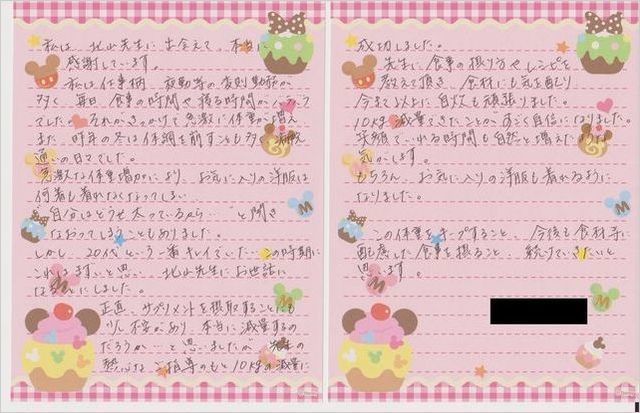 私は、北山先生に出会えて、本当に
感謝しています。
私は仕事柄、夜勤等の変則勤務が
多く、毎日、食事の時間や摂る時間がバラバラ
でした。それがきっかけで急激に体重が増え
また、昨年の冬は体調を崩すことも多く、病院
通いの日々でした。
急激な体重増加により、お気に入りの洋服は
何着も着れなくなってしまい
"自分はどうせ太っているから…"と開き
なおってしまうこともありました。
しかし、20代という一番キレイでいたいこの時期に
これはまずいと思い、北山先生にお世話に
なることにしました。
正直、サプリメントを摂取することにも
少し不安があり、本当に減量するの
だろうか…と思いましたが、先生の
熱心なご指導のもと10kgの減量に
成功しました。
先生に食事の摂り方やレシピを
教えて頂き、食材にも気を配り
今まで以上に自炊も頑張りました。
10kg減量できたことがすごく自信になりました。
笑顔でいれる時間も自然と増えたような
気がします。
もちろん、お気に入りの洋服も着れるように
なりました。
この体重をキープすること、今後も食材等に
配慮した食事を摂ること、続けていきたいと
思います。